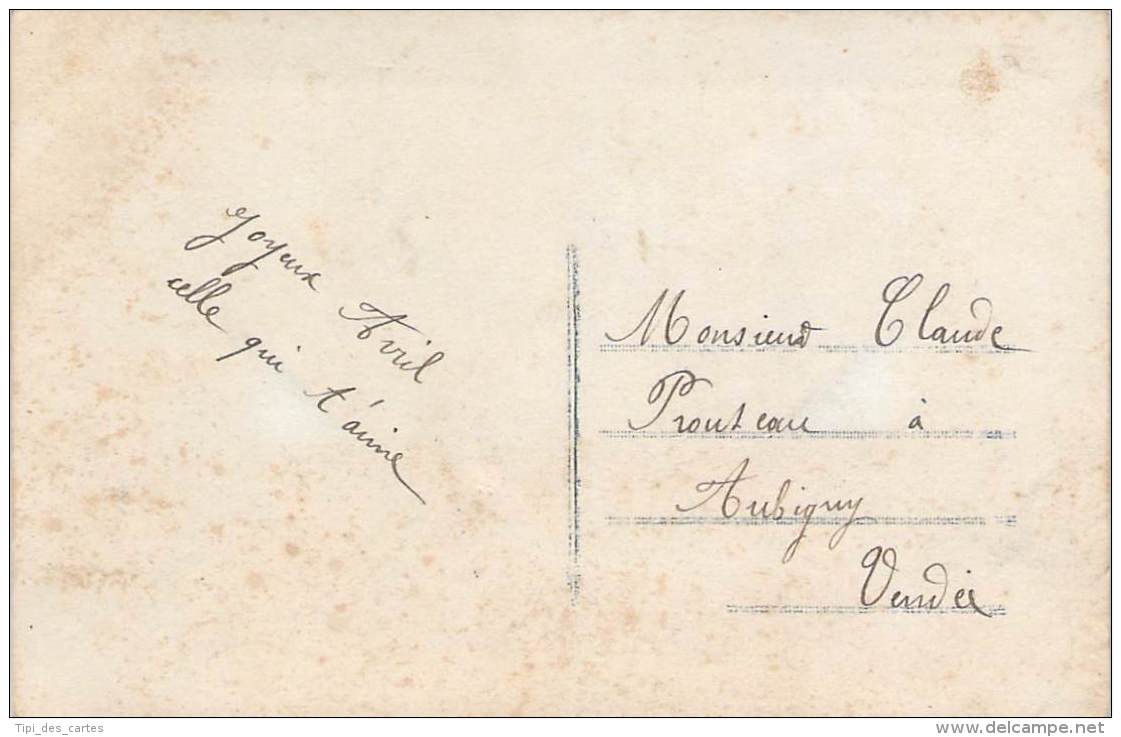 Joyeux Avril
celle qui t'aime
Monsieur Claude
Prouteau à
Aubigny
Vendée
Tipi_des_cartes
www.delcampe.net